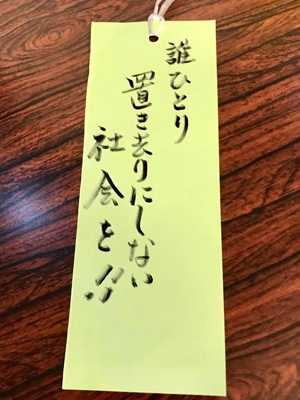 誰ひとり
置き去りにしない
社会を!!